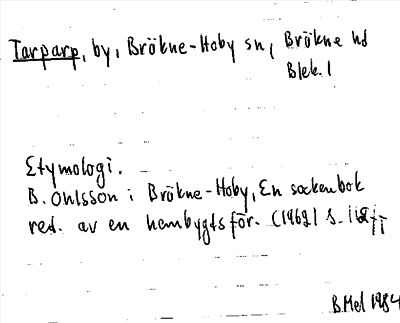 Tarparp, by, Bräkne-Hoby sn, Bräkne hd
Blek. l
Etymologi.
B. Ohlsson i Bräkne-Hoby, En sockenbok
red. av en hembygdsför. (1962) s.
B. Mel 1984